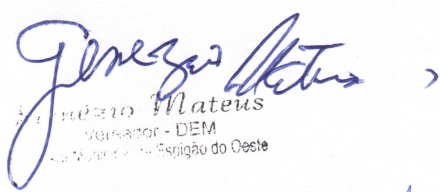 Genezio Mateus
Genézio Mateus
Vereador - DEM
Espigão do Oeste